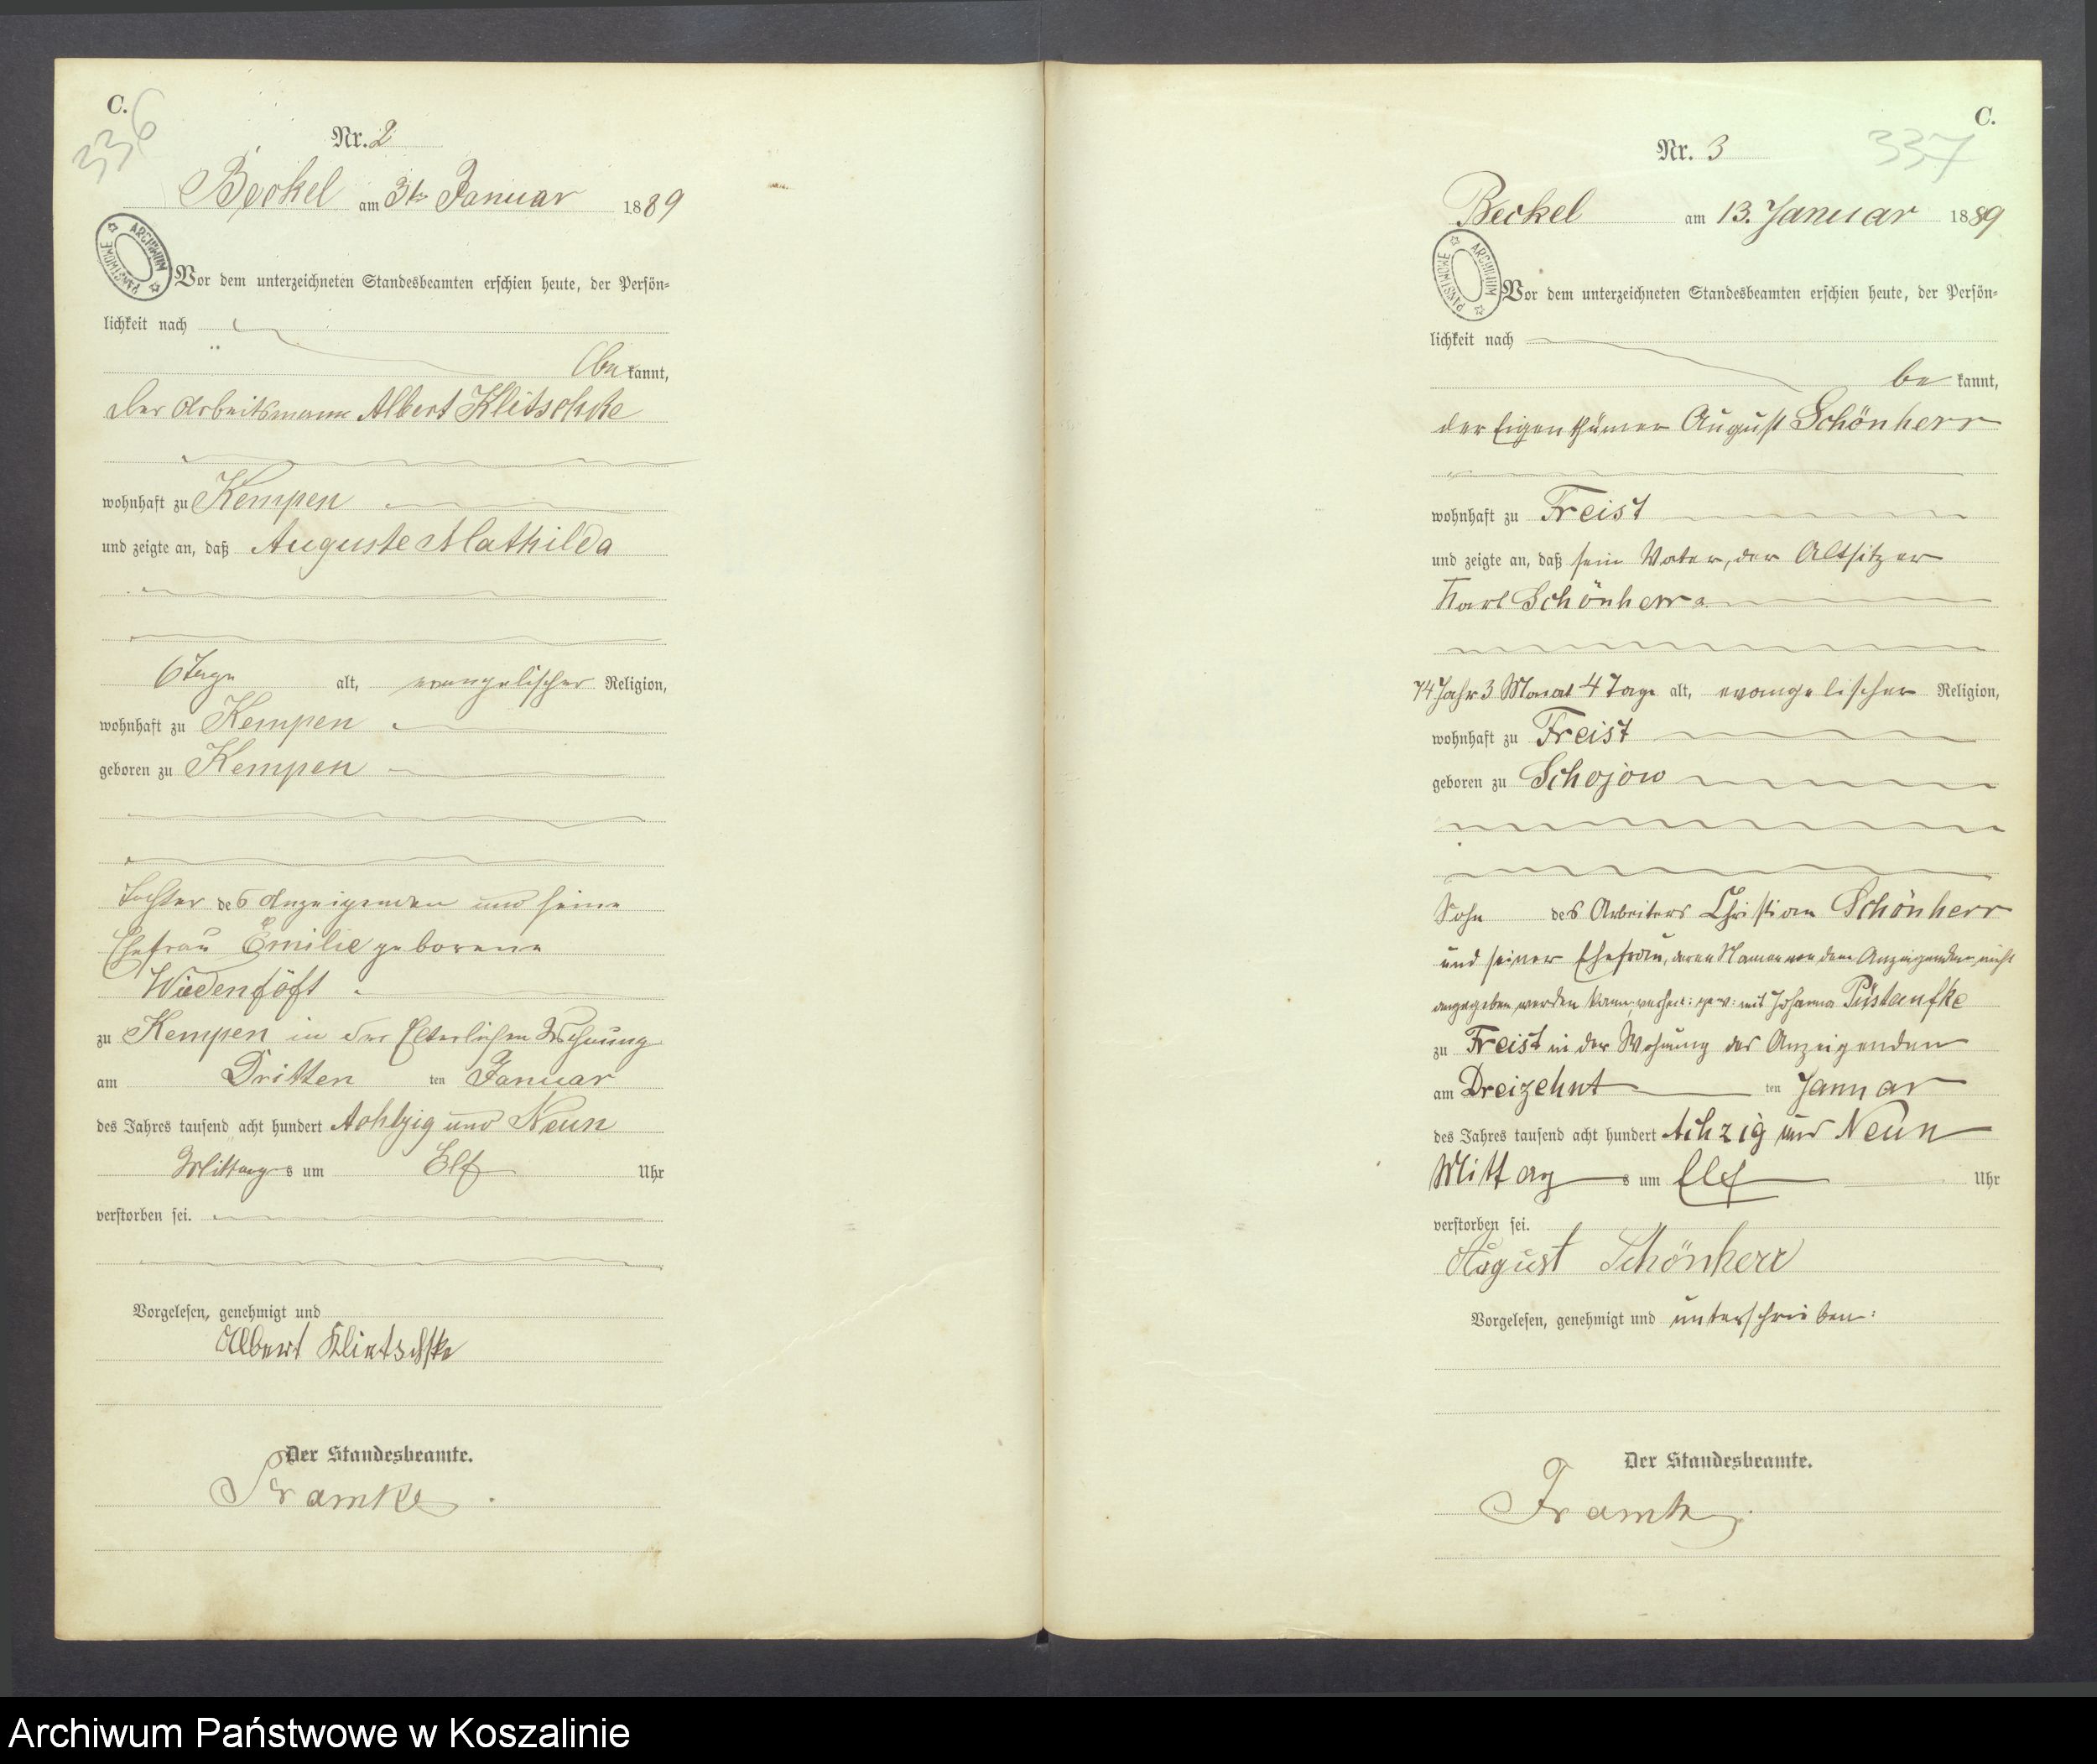 C.
336
Nr. 2
Beckel am 3ten Januar 1889
ARCHIWUM PAŃSTWOWE
Vor dem unterzeichneten Standesbeamten erschien heute, der Persön=
lichkeit nach
be kannt,
der Arbeitsmann Albert Klitschke
wohnhaft zu Kempen
und zeigte an, daß Auguste Mathilda
6 Tage alt, evangelischer Religion,
wohnhaft zu Kempen
geboren zu Kempen
Tochter des Anzeigenden und seine
Ehefrau Emilie geborene
Wiedenföft
zu Kempen in der Elterlichen Wohnung
am Dritten ten Januar
des Jahres tausend acht hundert Achtzig und Neun
Mittags um Elf Uhr
verstorben sei.
Vorgelesen, genehmigt und
Albert Klietschke
Der Standesbeamte.
Framke
C.
337
Nr. 3
Beckel am 13. Januar 1889
ARCHIWUM PAŃSTWOWE
Vor dem unterzeichneten Standesbeamten erschien heute, der Persön=
lichkeit nach
be kannt,
der Eigenthümer August Schönherr
wohnhaft zu Freist
und zeigte an, daß sein Vater, der Altsitzer
Karl Schönherr
74 Jahr 3 Monat 4 Tage alt, evangelischer Religion,
wohnhaft zu Freist
geboren zu Schojow
Sohn des Arbeiters Christian Schönherr
und seiner Ehefrau, deren Namen von dem Anzeigenden nicht
angegeben werden kann, mit Johanna Püstanfke
zu Freist in der Wohnung des Anzeigenden
am Dreizehnt ten Januar
des Jahres tausend acht hundert Achzig und Neun
Mittags um Elf Uhr
verstorben sei.
August Schönherr
Vorgelesen, genehmigt und unterschrieben:
Der Standesbeamte.
Framke
Archiwum Państwowe w Koszalinie